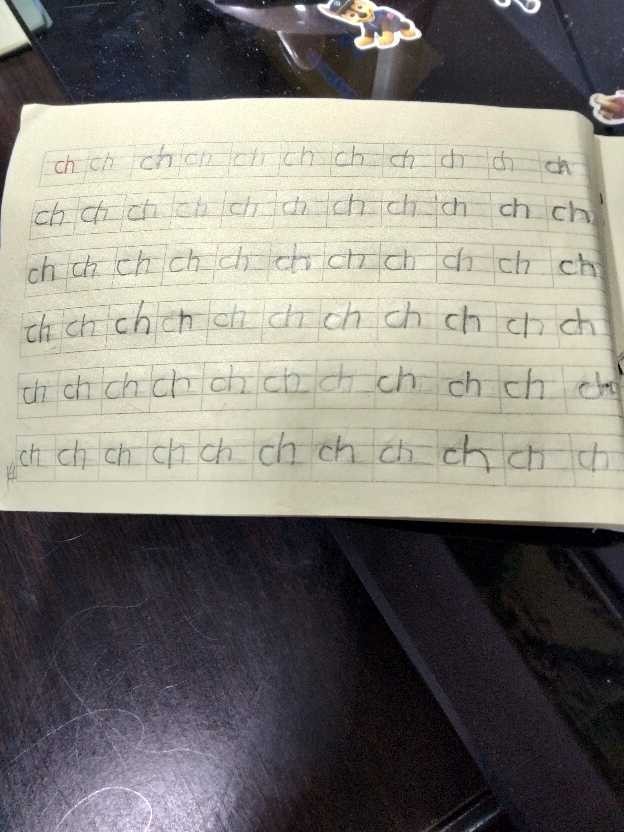 ch ch ch ch ch ch ch ch ch ch ch
ch ch ch ch ch ch ch ch ch ch ch
ch ch ch ch ch ch ch ch ch ch ch
ch ch ch ch ch ch ch ch ch ch ch
ch ch ch ch ch ch ch ch ch ch ch
ch ch ch ch ch ch ch ch ch ch ch